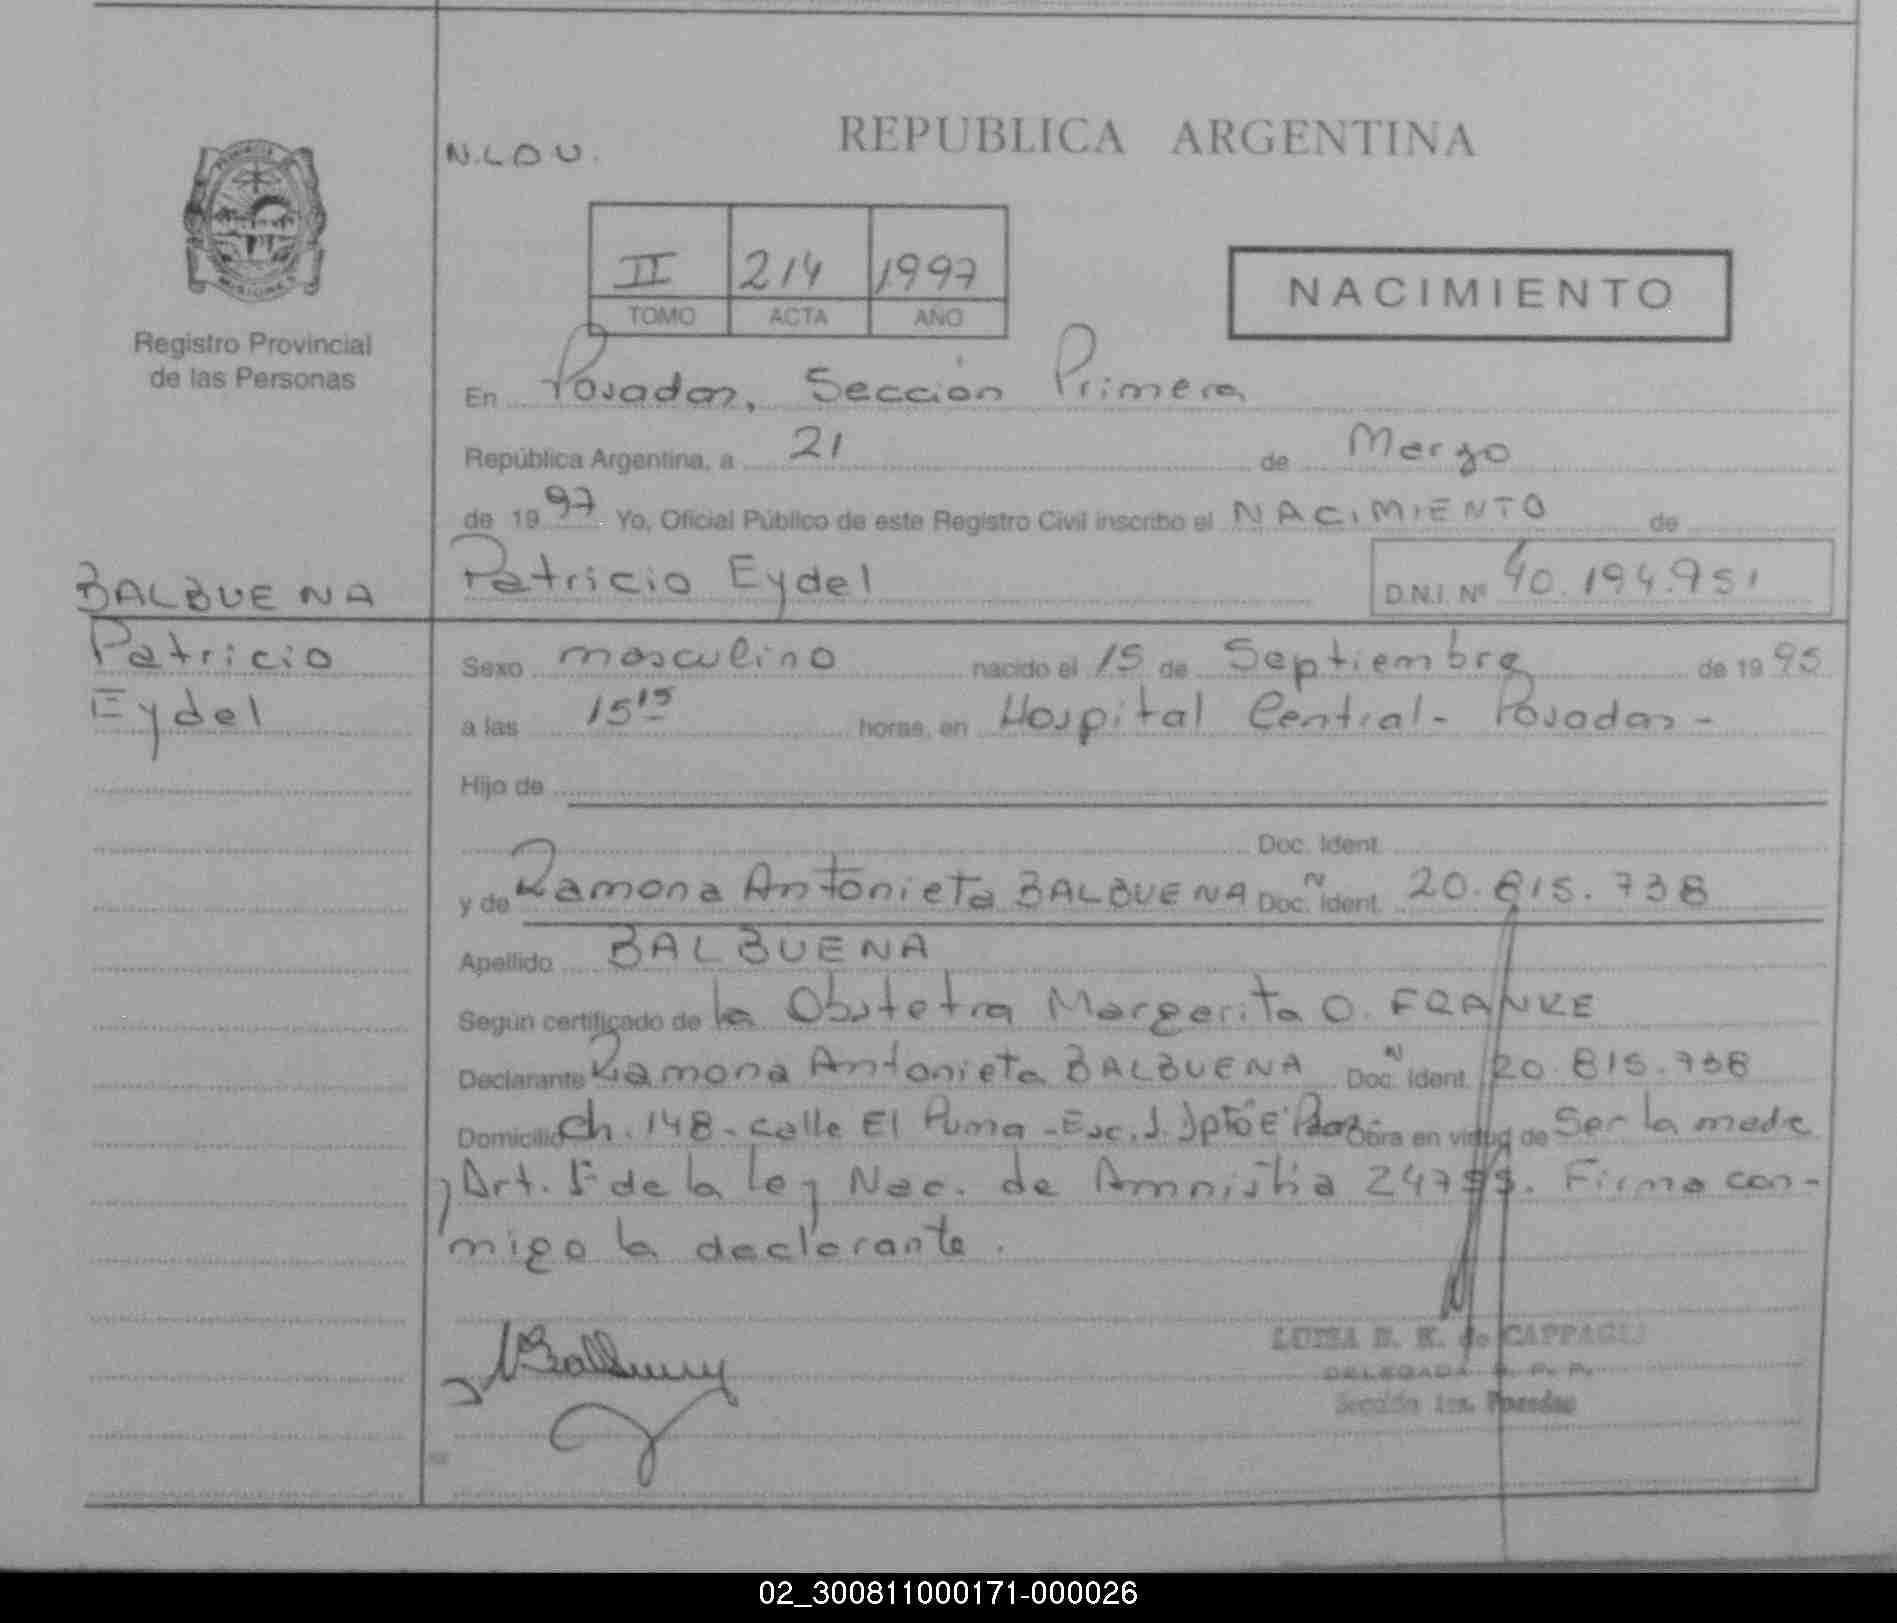 REPUBLICA ARGENTINA
N.L.D.U.
II 214 1997
TOMO ACTA AÑO
NACIMIENTO
MISIONES
Registro Provincial
de las Personas
En Posadas, Sección Primera
República Argentina, a 21 de Marzo
de 1997 Yo, Oficial Público de este Registro Civil inscribo el NACIMIENTO de
Patricio Eydel D.N.I. Nº 40.194.951
BALBUENA
Patricio
Eydel
Sexo masculino nacido el 15 de Septiembre de 1995
a las 15 15 horas, en Hospital Central - Posadas -
Hijo de
Doc. Ident.
y de Ramona Antonieta BALBUENA Doc. N Ident. 20.815.738
Apellido BALBUENA
Según certificado de la Obstetra Margarita O. FRANKE
Declarante Ramona Antonieta BALBUENA Doc. N Ident. 20.815.738
Domicilio Ch. 148 - calle El Puma - Esc. J. Obra en virtud de Ser la madre
y Art. 1º de la ley Nac. de Amnistia 24755. Firma con-
migo la declarante.
LUISA E. K. de CAPPAGLI
DELEGADA R. P. P.
Sección 1ra. Posadas
02_300811000171-000026